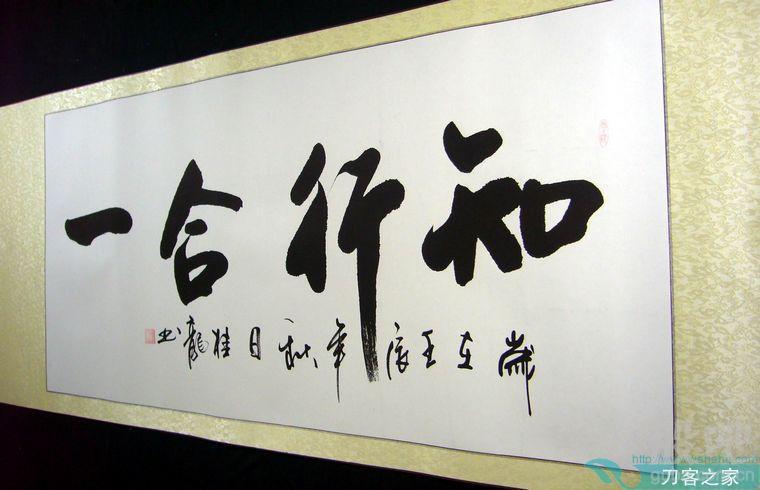 知行合一
歲在壬辰年秋日桂龍书
http://www.shehu.com
刀客之家